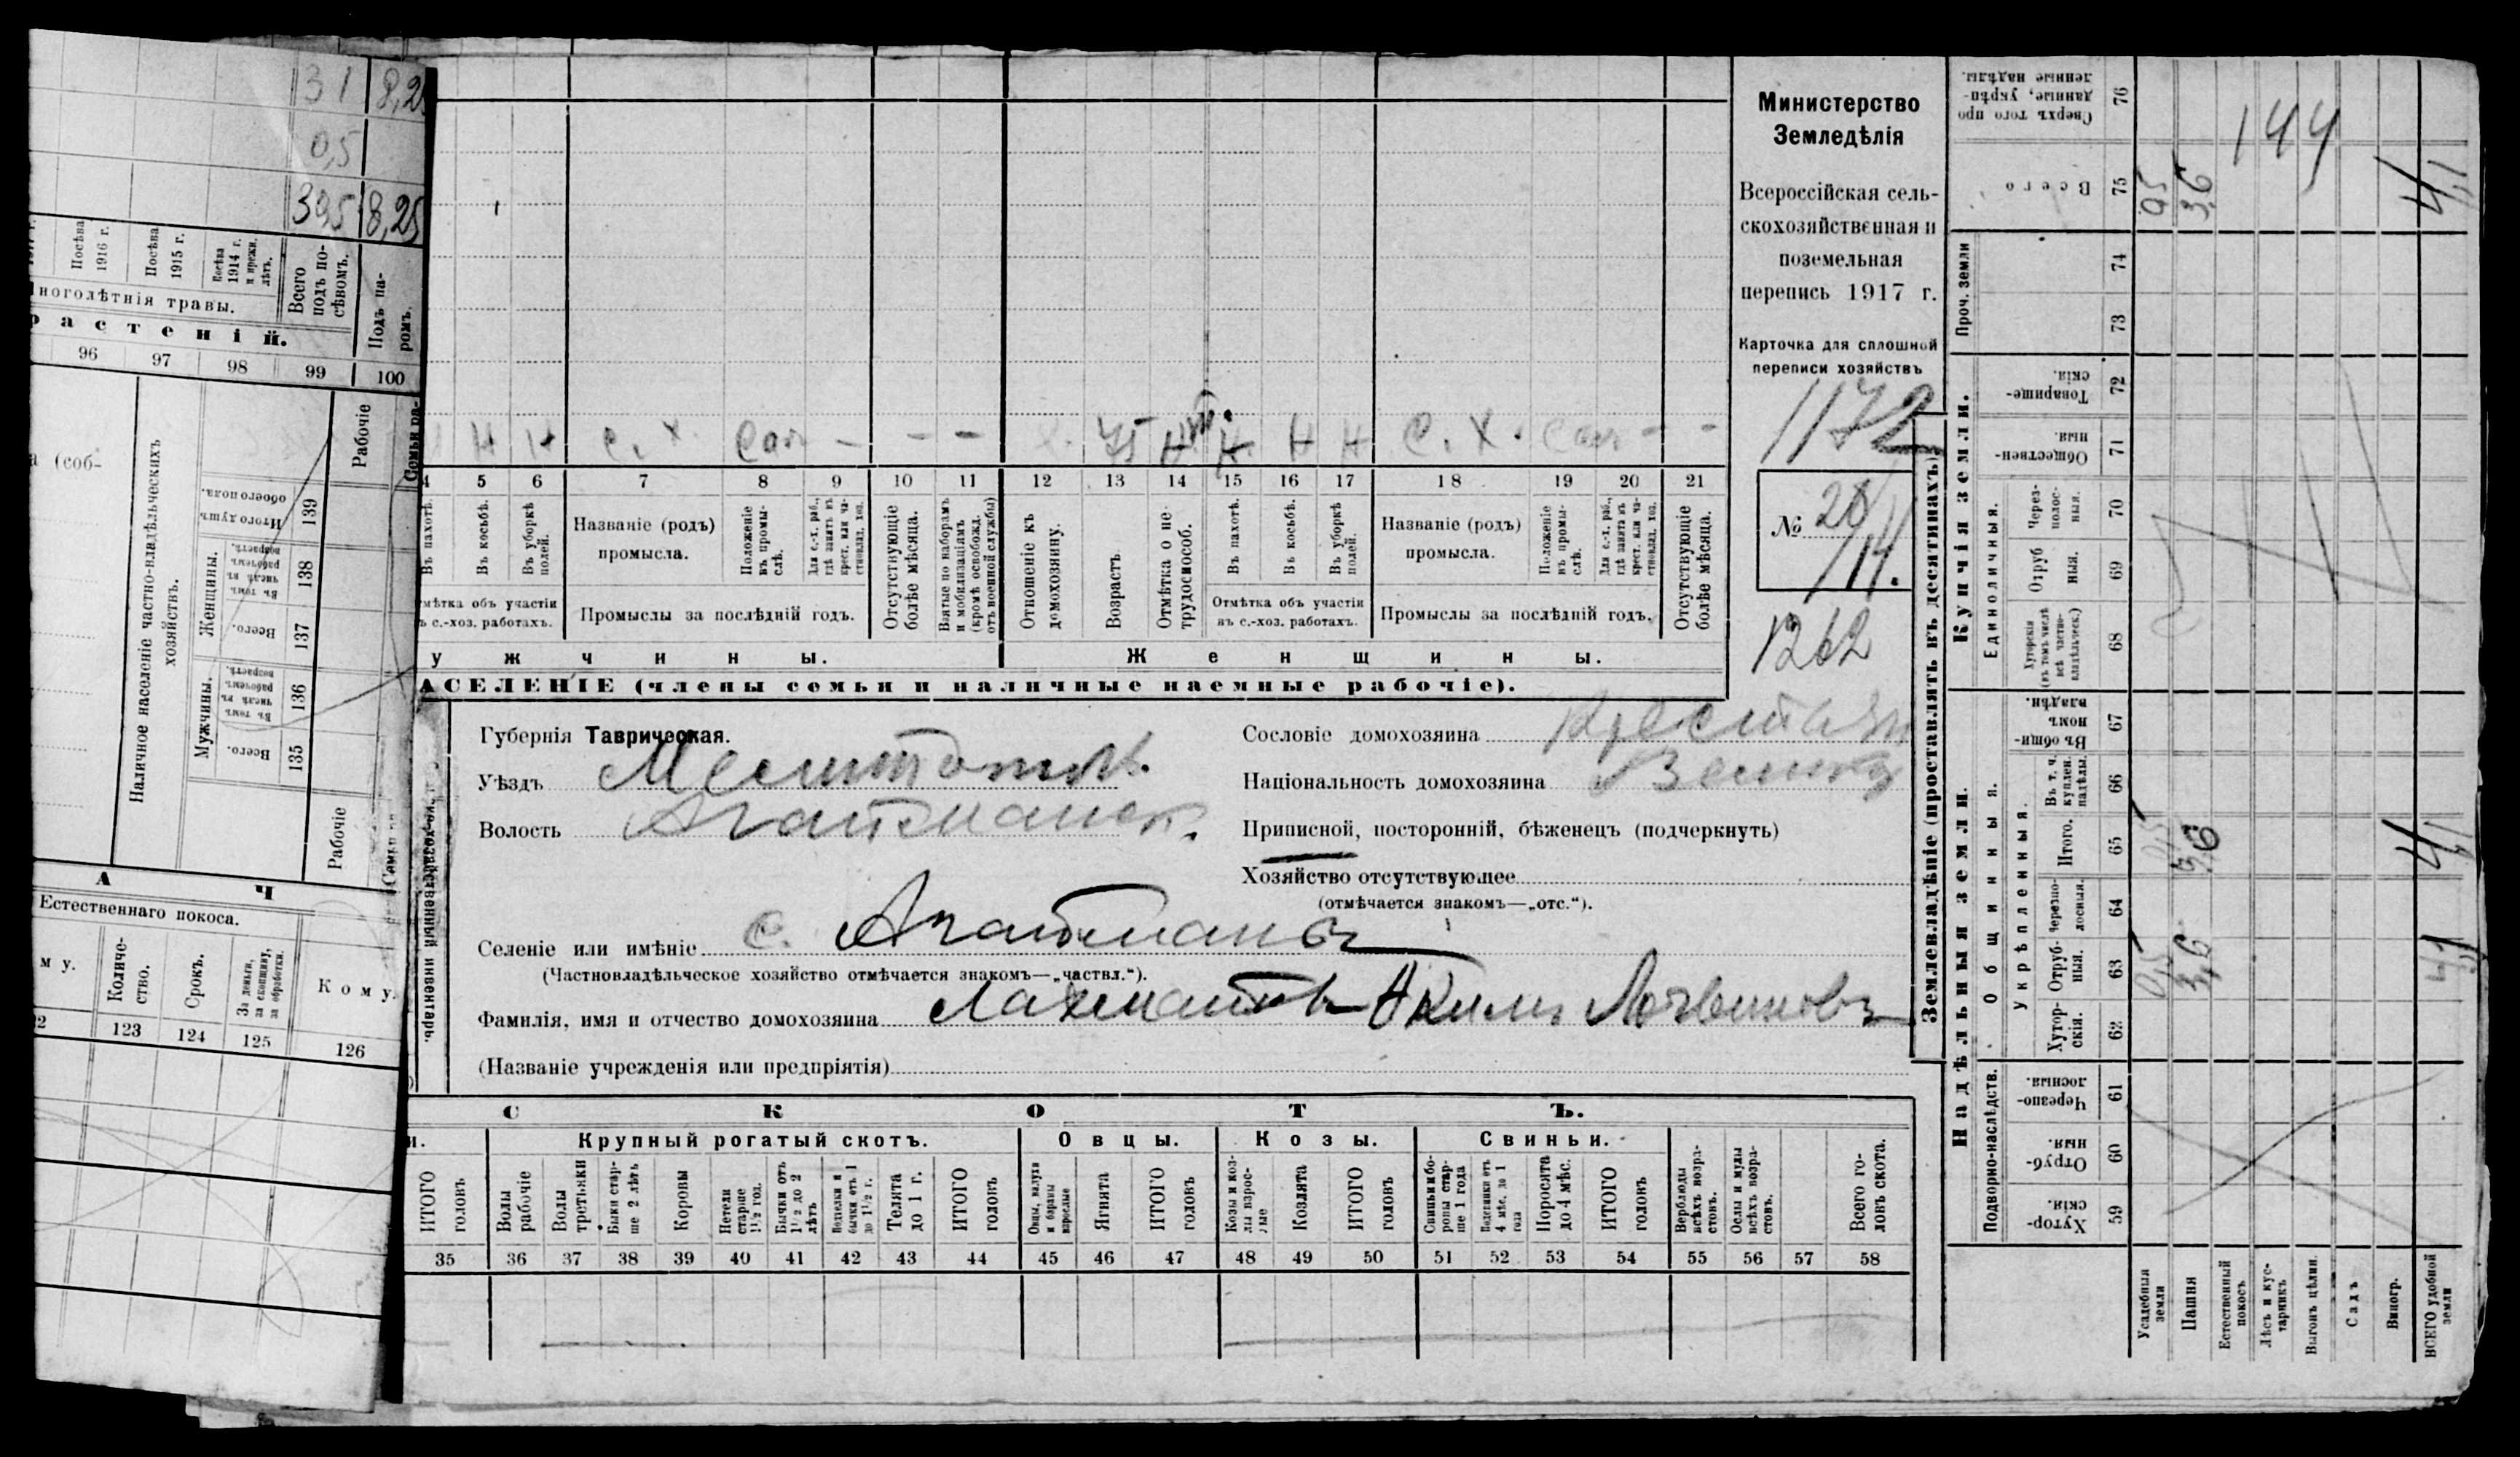 31 8,25
0,5
39,5 8,25
Посѣва 1916 г.
Посѣва 1915 г.
Посѣва 1914 г. и прежн. лѣтъ.
Всего подъ посѣвомъ.
Подъ паромъ.
ноголѣтнія травы.
растеній.
96 97 98 99 100
а (соб-
Наличное населеніе частно-владѣльческихъ хозяйствъ.
Мужчины.
Женщины.
Всего.
Въ томъ числѣ въ рабочемъ возрастѣ.
Всего.
Въ томъ числѣ въ рабочемъ возрастѣ.
Итого душъ обоего пола.
135 136 137 138 139
Рабочіе
Рабочіе
А Ч
Естественнаго покоса.
му.
Количество.
Срокъ.
За деньги, за скопщину, за обработки.
Кому.
2 123 124 125 126
Н Н С. Х. Сам - - - 75 Н Н Н С. Х. Сам - -
4 5 6 7 8 9 10 11 12 13 14 15 16 17 18 19 20 21
Въ пахотѣ.
Въ косьбѣ.
Въ уборкѣ полей.
Названіе (родъ) промысла.
Положеніе въ промыслѣ.
Для с.-х. раб., гдѣ занятъ въ крест. или частновлад. хоз.
Отсутствующіе болѣе мѣсяца.
Взятые по наборамъ и мобилизаціямъ (кромѣ освобожд. отъ военной службы)
Отношеніе къ домохозяину.
Возрастъ
Отмѣтка о нетрудоспособ.
Въ пахотѣ.
Въ косьбѣ.
Въ уборкѣ полей.
Названіе (родъ) промысла.
Положеніе въ промыслѣ.
Для с.-х. раб., гдѣ занята въ крест. или частновлад. хоз.
Отсутствующіе болѣе мѣсяца.
мѣтка объ участіи ъ с.-хоз. работахъ.
Промыслы за послѣдній годъ.
Отмѣтка объ участіи въ с.-хоз. работахъ.
Промыслы за послѣдній годъ.
ужчины.
Женщины.
АСЕЛЕНІЕ (члены семьи и наличные наемные рабочіе).
Министерство
Земледѣлія
Всероссійская сель-
скохозяйственная и
поземельная
перепись 1917 г.
Карточка для сплошной
переписи хозяйствъ
1172
№ 28
114.
1262
Губернія Таврическая.
Уѣздъ Мелитопольск.
Волость Агайманск.
Сословіе домохозяина крестьян
Національность домохозяина Велик
Приписной, посторонній, бѣженецъ (подчеркнуть)
Хозяйство отсутствующее
(отмѣчается знакомъ—„отс.“).
Селеніе или имѣніе с. Агайманы
(Частновладѣльческое хозяйство отмѣчается знакомъ—„частвл.“).
Фамилія, имя и отчество домохозяина Лахматовъ Акимъ Логвиновъ
(Названіе учрежденія или предпріятія)
-хозяйственный инвентарь.
СКОТЪ.
и.
Крупный рогатый скотъ.
Овцы.
Козы.
Свиньи.
ИТОГО головъ
Волы рабочіе
Волы третьяки
Быки старше 2 лѣтъ
Коровы
Нетели старше 1½ год.
Бычки отъ 1½ до 2 лѣтъ
Подтелки и бычки отъ 1 до 1½ г.
Телята до 1 г.
ИТОГО головъ
Овцы, валухи и бараны взрослые
Ягнята
ИТОГО головъ
Козы и козлы взрослые
Козлята
ИТОГО головъ
Свиньи и боровы старше 1 года
Подсвинки отъ 4 мѣс. до 1 года
Поросята до 4 мѣс.
ИТОГО головъ
Верблюды всѣхъ возрастовъ.
Ослы и мулы всѣхъ возрастовъ.
Всего головъ скота.
35 36 37 38 39 40 41 42 43 44 45 46 47 48 49 50 51 52 53 54 55 56 57 58
Землевладѣніе (проставлять въ десятинахъ)
Надѣльныя земли.
Купчія земли.
Проч. земли
Подворно-наслѣдств.
Общинныя.
Укрѣпленныя.
Единоличныя.
Хуторскія.
Отрубныя.
Черезполосныя.
Хуторскія.
Отрубныя.
Черезполосныя.
Итого.
Въ т. ч. куплен. надѣлы.
Въ общинномъ владѣн.
Хуторскія (въ томъ числѣ всѣ частновладѣльческ.)
Отрубныя.
Черезполосныя.
Общественныя.
Товарищескія.
Всего
Сверхъ того проданные, укрѣпленные надѣлы.
59 60 61 62 63 64 65 66 67 68 69 70 71 72 73 74 75 76
Усадебныя земли 0,5 0,5 0,5
Пашня 3,6 3,6 3,6
Естественный покосъ
Лѣсъ и кустарникъ
Выгонъ цѣлин.
Садъ
Виногр.
ВСЕГО удобной земли 4,1 4,1 4,1
144